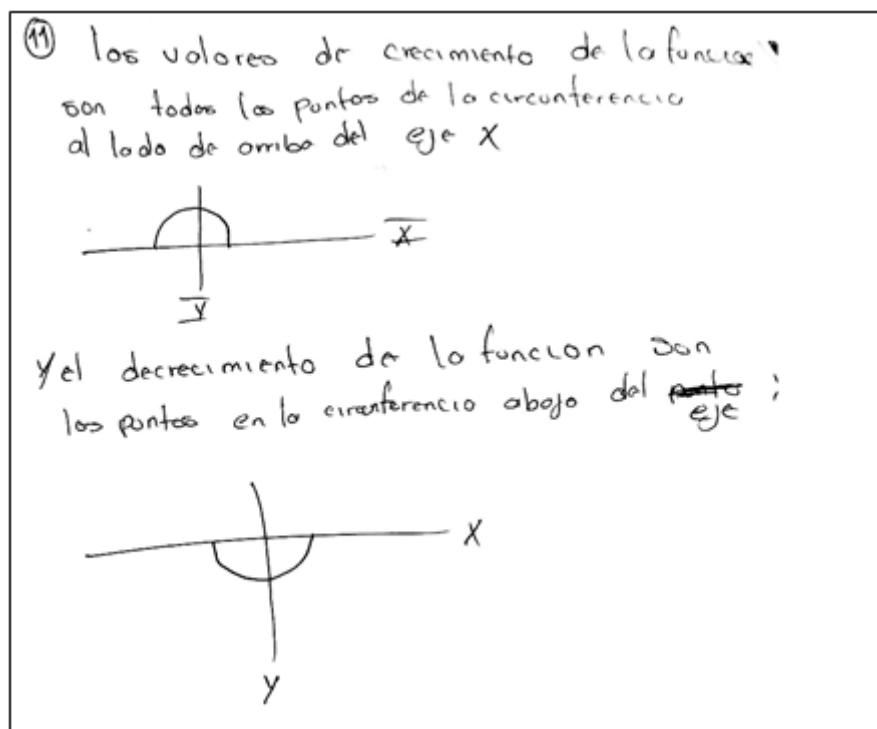 11 los valores de crecimiento de la funcion
son todos los puntos de la circunferencia
al lado de arriba del eje X
X
Y
y el decrecimiento de la funcion son
los puntos en la circunferencia abajo del punto eje ;
X
Y